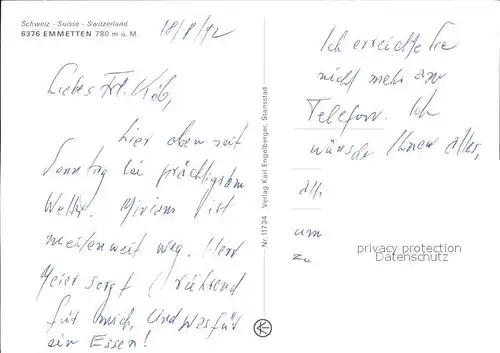 Schweiz - Suisse - Switzerland
6376 EMMETTEN 780 m ü. M.
18/8/92
Liebes Frl. Köb,
hier oben seit
Sonntag bei prächtigstem
Wetter. Miriam ist
meilenweit weg. Herr
Meier sorgt rührend
für mich. Und was für
ein Essen!
Nr. 11734 Verlag Karl Engelberger, Stansstad
Ich erreichte Sie
nicht mehr am
Telefon. Ich
wünsche Ihnen alles,
alles
um
zu
privacy protection
Datenschutz